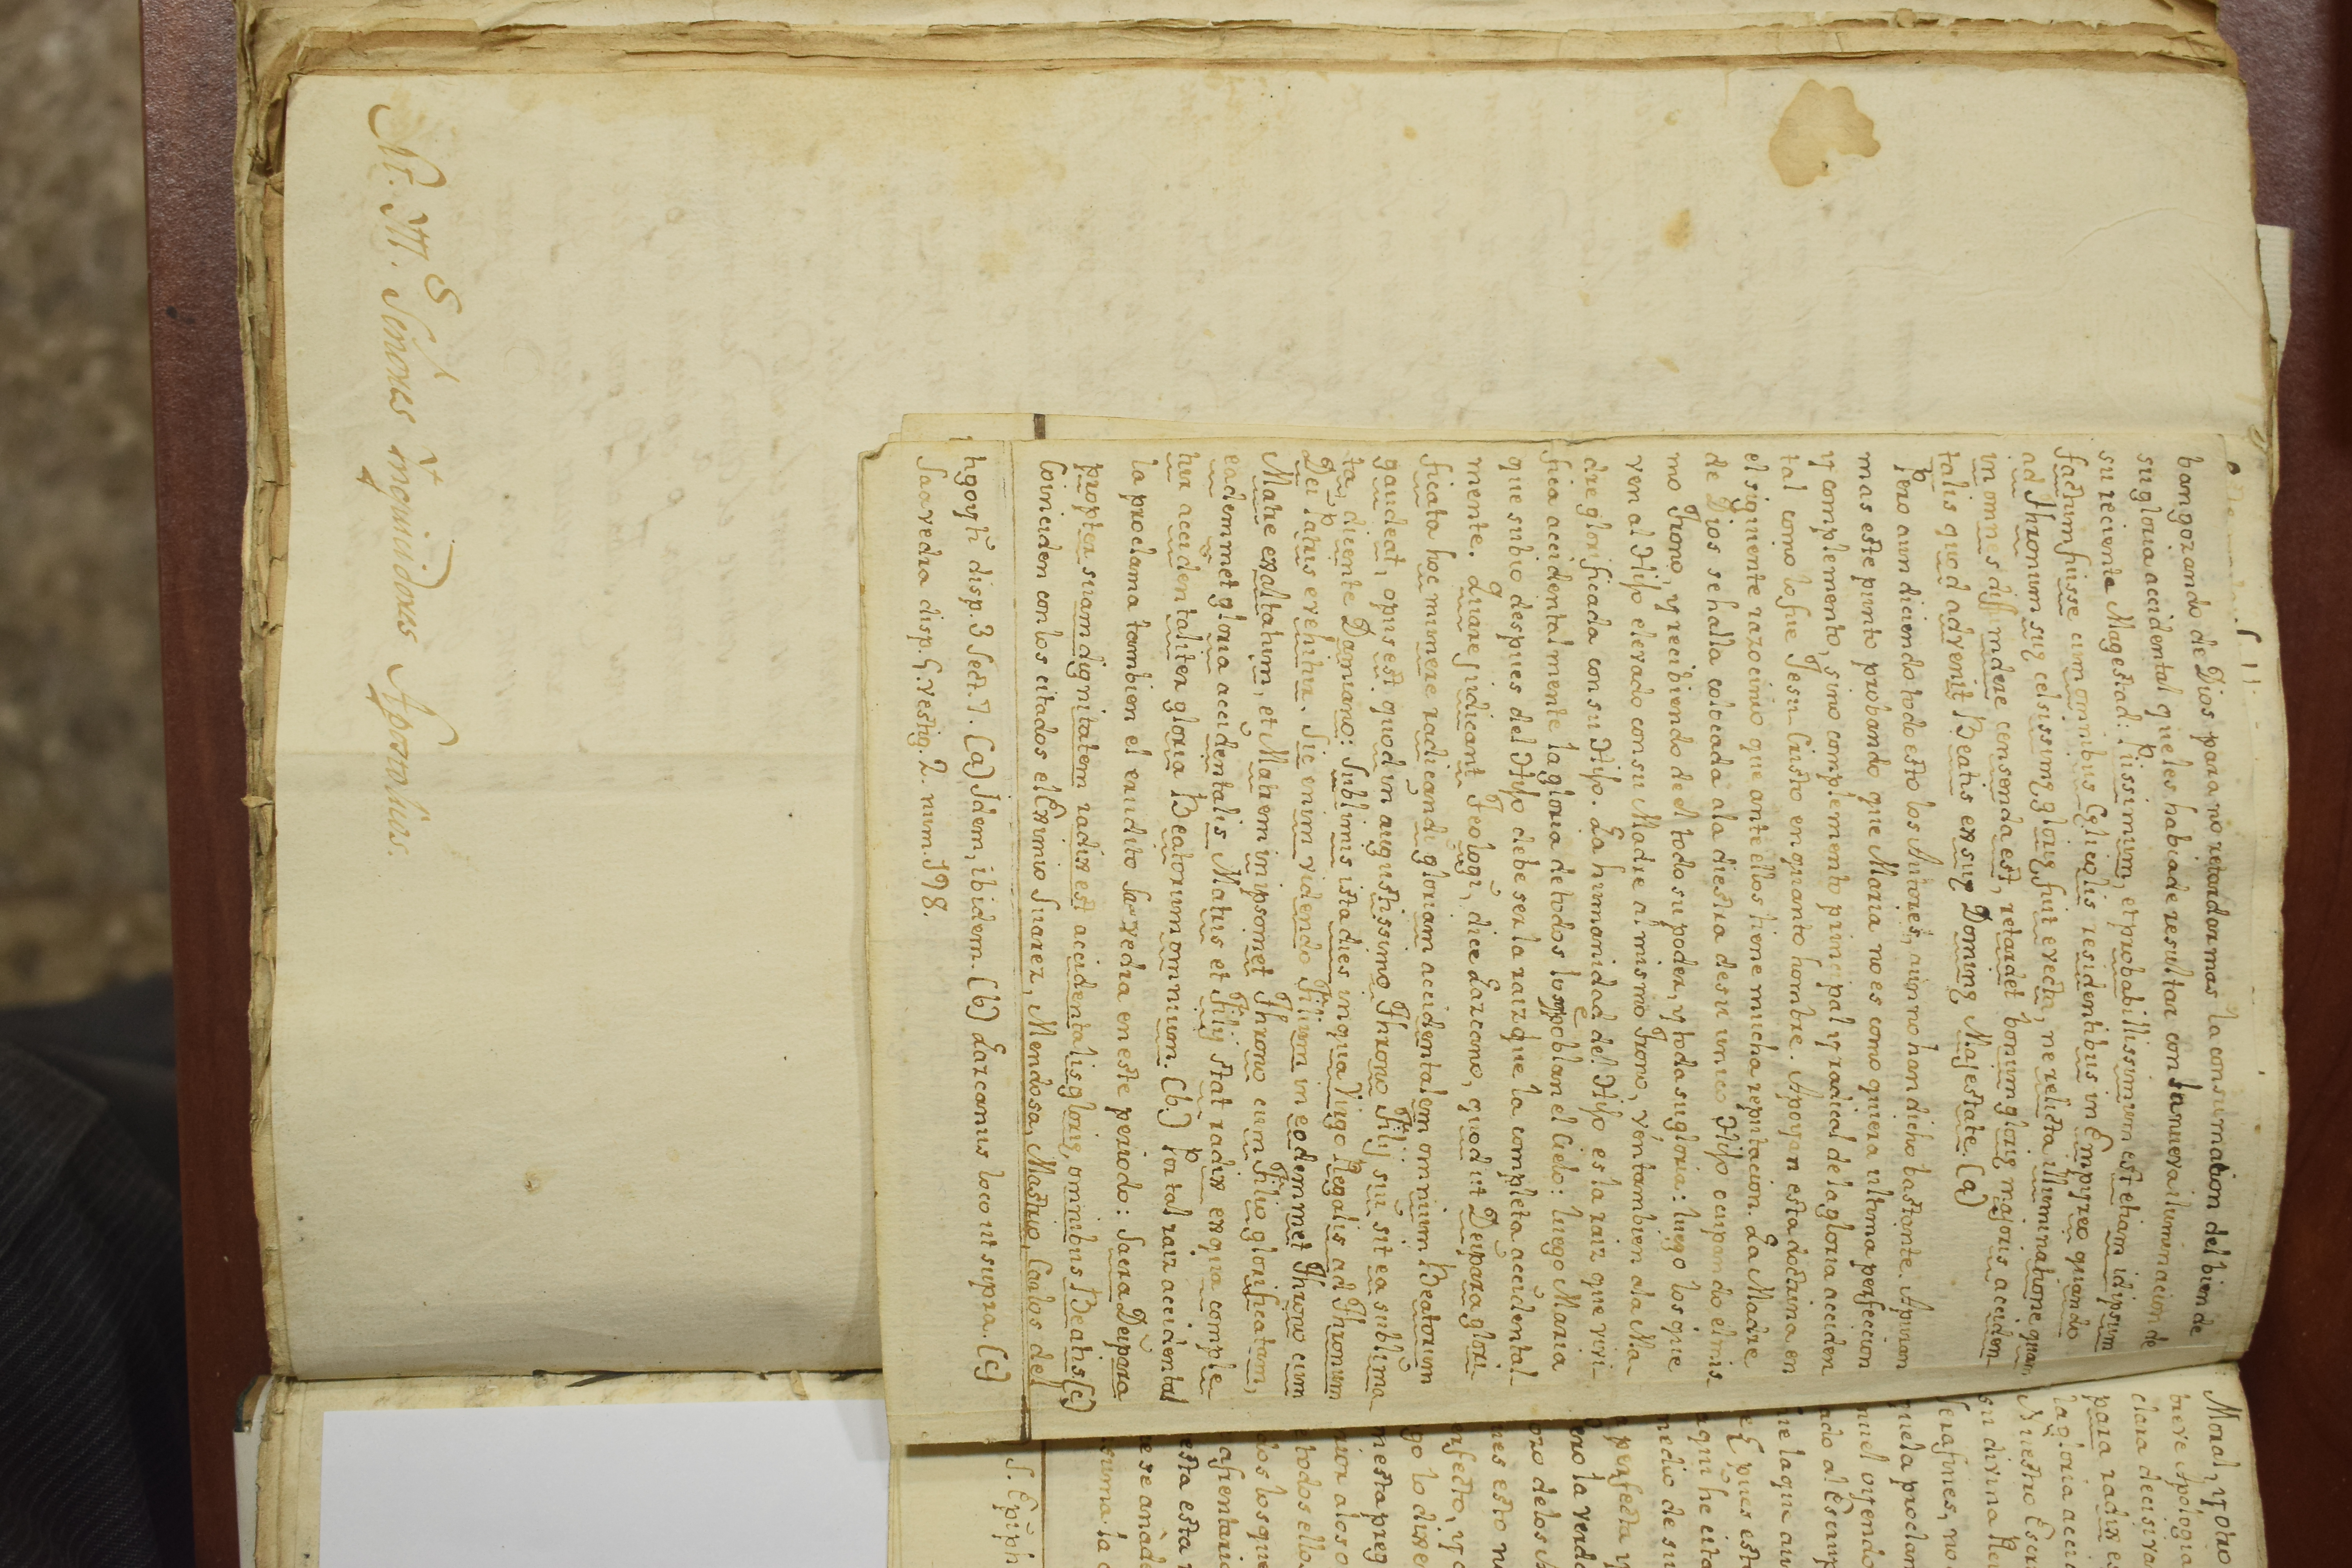 M. Y. S. Señores Inquicidores Apostolicos.
bangozando de Dios para no retardar mas la consumacion del bien de
su gloria accidental que les habia de resultar con la nueva iluminacion de
su reciente Magestad: Piissimum, et probabillissimum est etiam idipsum
factum fuisse cum omnibus Cęlicolis residentibus in Empireo quando
ad Thronum suę celsissimę glorię fuit evecta, ne relicta illuminatione quam
in omnes diffundere censenda est, retardet bonum glorię majoris acciden
talis quod advenit Beatis ex suę Dominę Majestate. (a)
Pero aun diciendo todo esto los Autores, aun no han dicho bastante. Apuran
mas este punto probando que Maria no es como quiera ultima perfeccion
y complemento, sino complemento principal y radical de la gloria acciden
tal como lo fue Jesu Cristo en quanto hombre. Apoyan esta doctrina en
el siguiente razocinio que ante ellos tiene mucha reputacion. La Madre
de Dios se halla colocada a la diestra de su unico Hijo ocupando el mis
mo Trono, y recibiendo de el todo su poder, y toda su gloria: luego los que
ven al Hijo elevado con su Madre al mismo Trono, ven tambien a la Ma
dre glorificada con su Hijo. La humanidad del Hijo es la raiz que vivi
fica accidentalmente la gloria de todos los que poblan el Cielo: luego Maria
que subio despues del Hijo debe ser la raiz que la completa accidental
mente. Quare judicant Teologi, dice Larcano, quod ut Deipara glori
ficata hoc munere radicandi gloriam accidentalem omnium Beatorum
gaudeat, opus est quod in augustissimo Throno Filij sui sit ea sublima
ta, dicente Damiano: Sublimis ista dies in qua Virgo Regalis ad Thronum
Dei Patris evehitur. Sic enim videndo Filium in eodemmet Throno cum
Matre exaltatum, et Matrem in ipsomet Throno cum Filio glorificatam,
eademmet gloria accidentalis Matris et Filij stat radix ex qua comple
tur accidentaliter gloria Beatorum omnium. (b.) Por tal raiz accidental
la proclama tambien el erudito Saavedra en este periodo: Sacra Deipara
propter suam dignitatem radix est accidentalis glorię omnibus Beatis (c)
Coinciden con los citados el Eximio Suarez, Mendosa, Mastrio, Carlos del
disp. 3 sect. 7. (a) Idem, ibidem. (b) Larcanus loco ut supra. (c)
Saavedra disp. 5. vestig. 2. num. 198.
Moral, y otro
breve Apologi
clara decisiva
para radix e
la gloria acci
Nuestro Escr
su divina
Serafines, no
ado al Escrip
ue la que au
e Epues est
aqui he cita
medio de su
a perfecta y
ero la verda
oro de los
ues esto n
erfecto, y
go lo dixe
mesta preg
rior a los o
e todos ello
dos los que
asentaria
esta esta
rese añad
suma la
S. Epiph